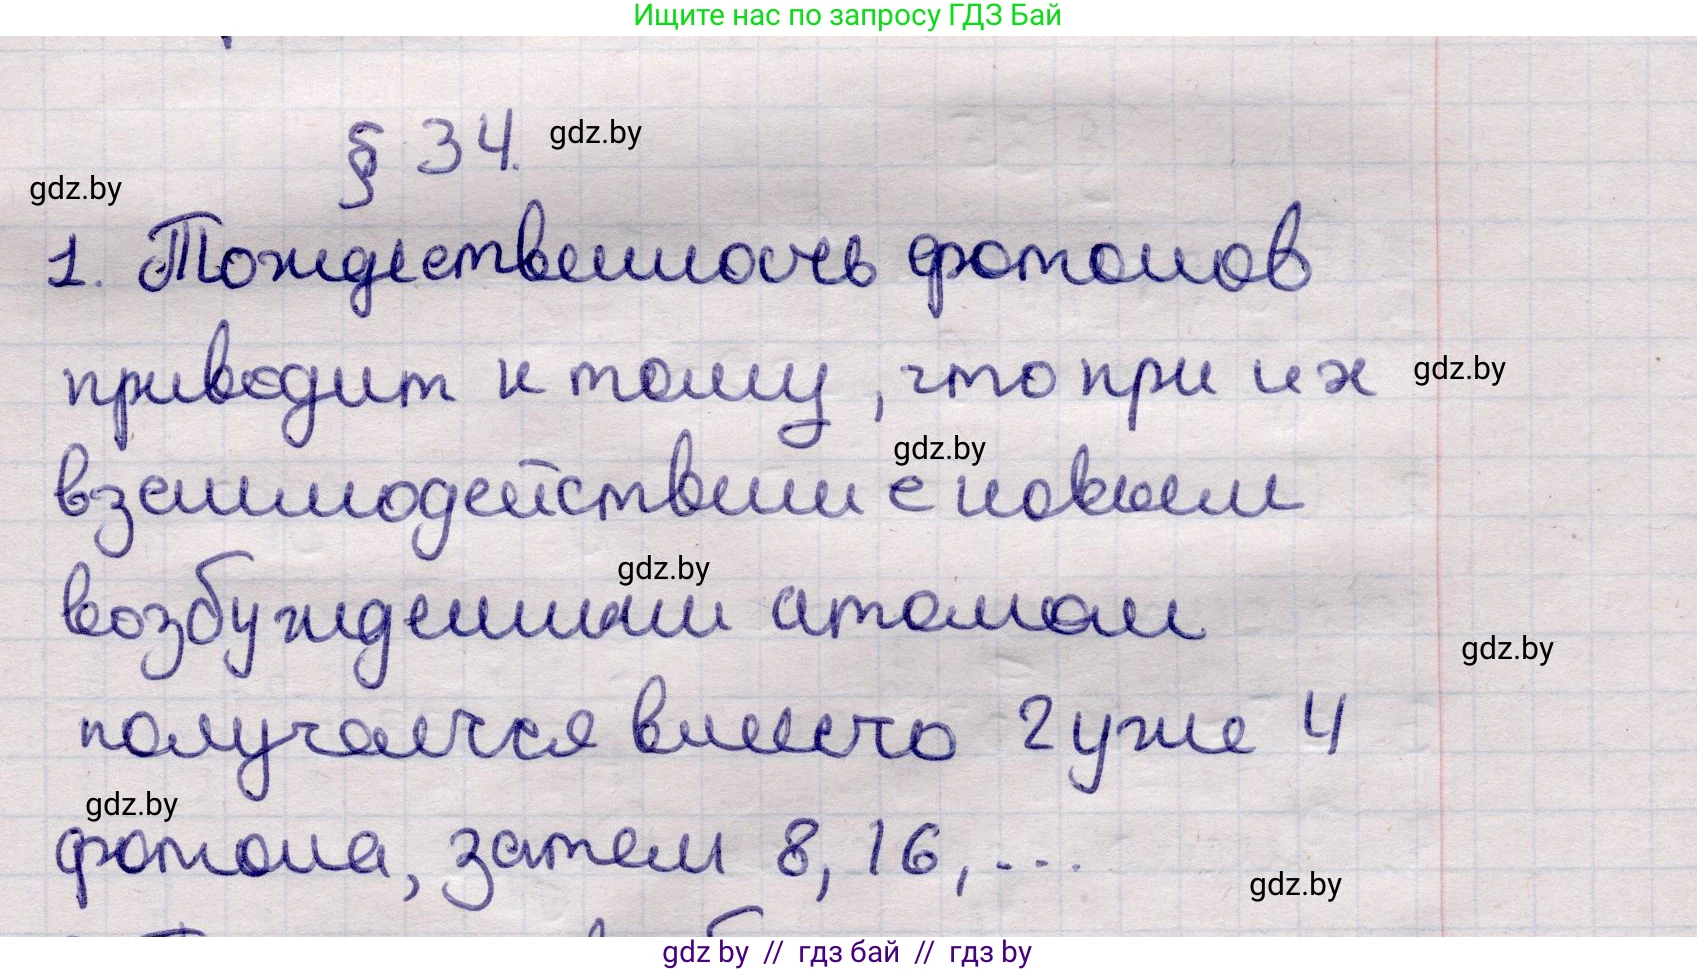 Ищите нас по запросу ГДЗ Бай
§ 34. gdz.by
gdz.by
1. Тождественность фотонов
приводит к тому, что при их gdz.by
gdz.by
взаимодействии с новым
gdz.by
возбужденным атомом
gdz.by
получается вместо 2 уже 4
gdz.by
фотона, затем 8, 16, ...
gdz.by
gdz by // гдз бай // гдз by